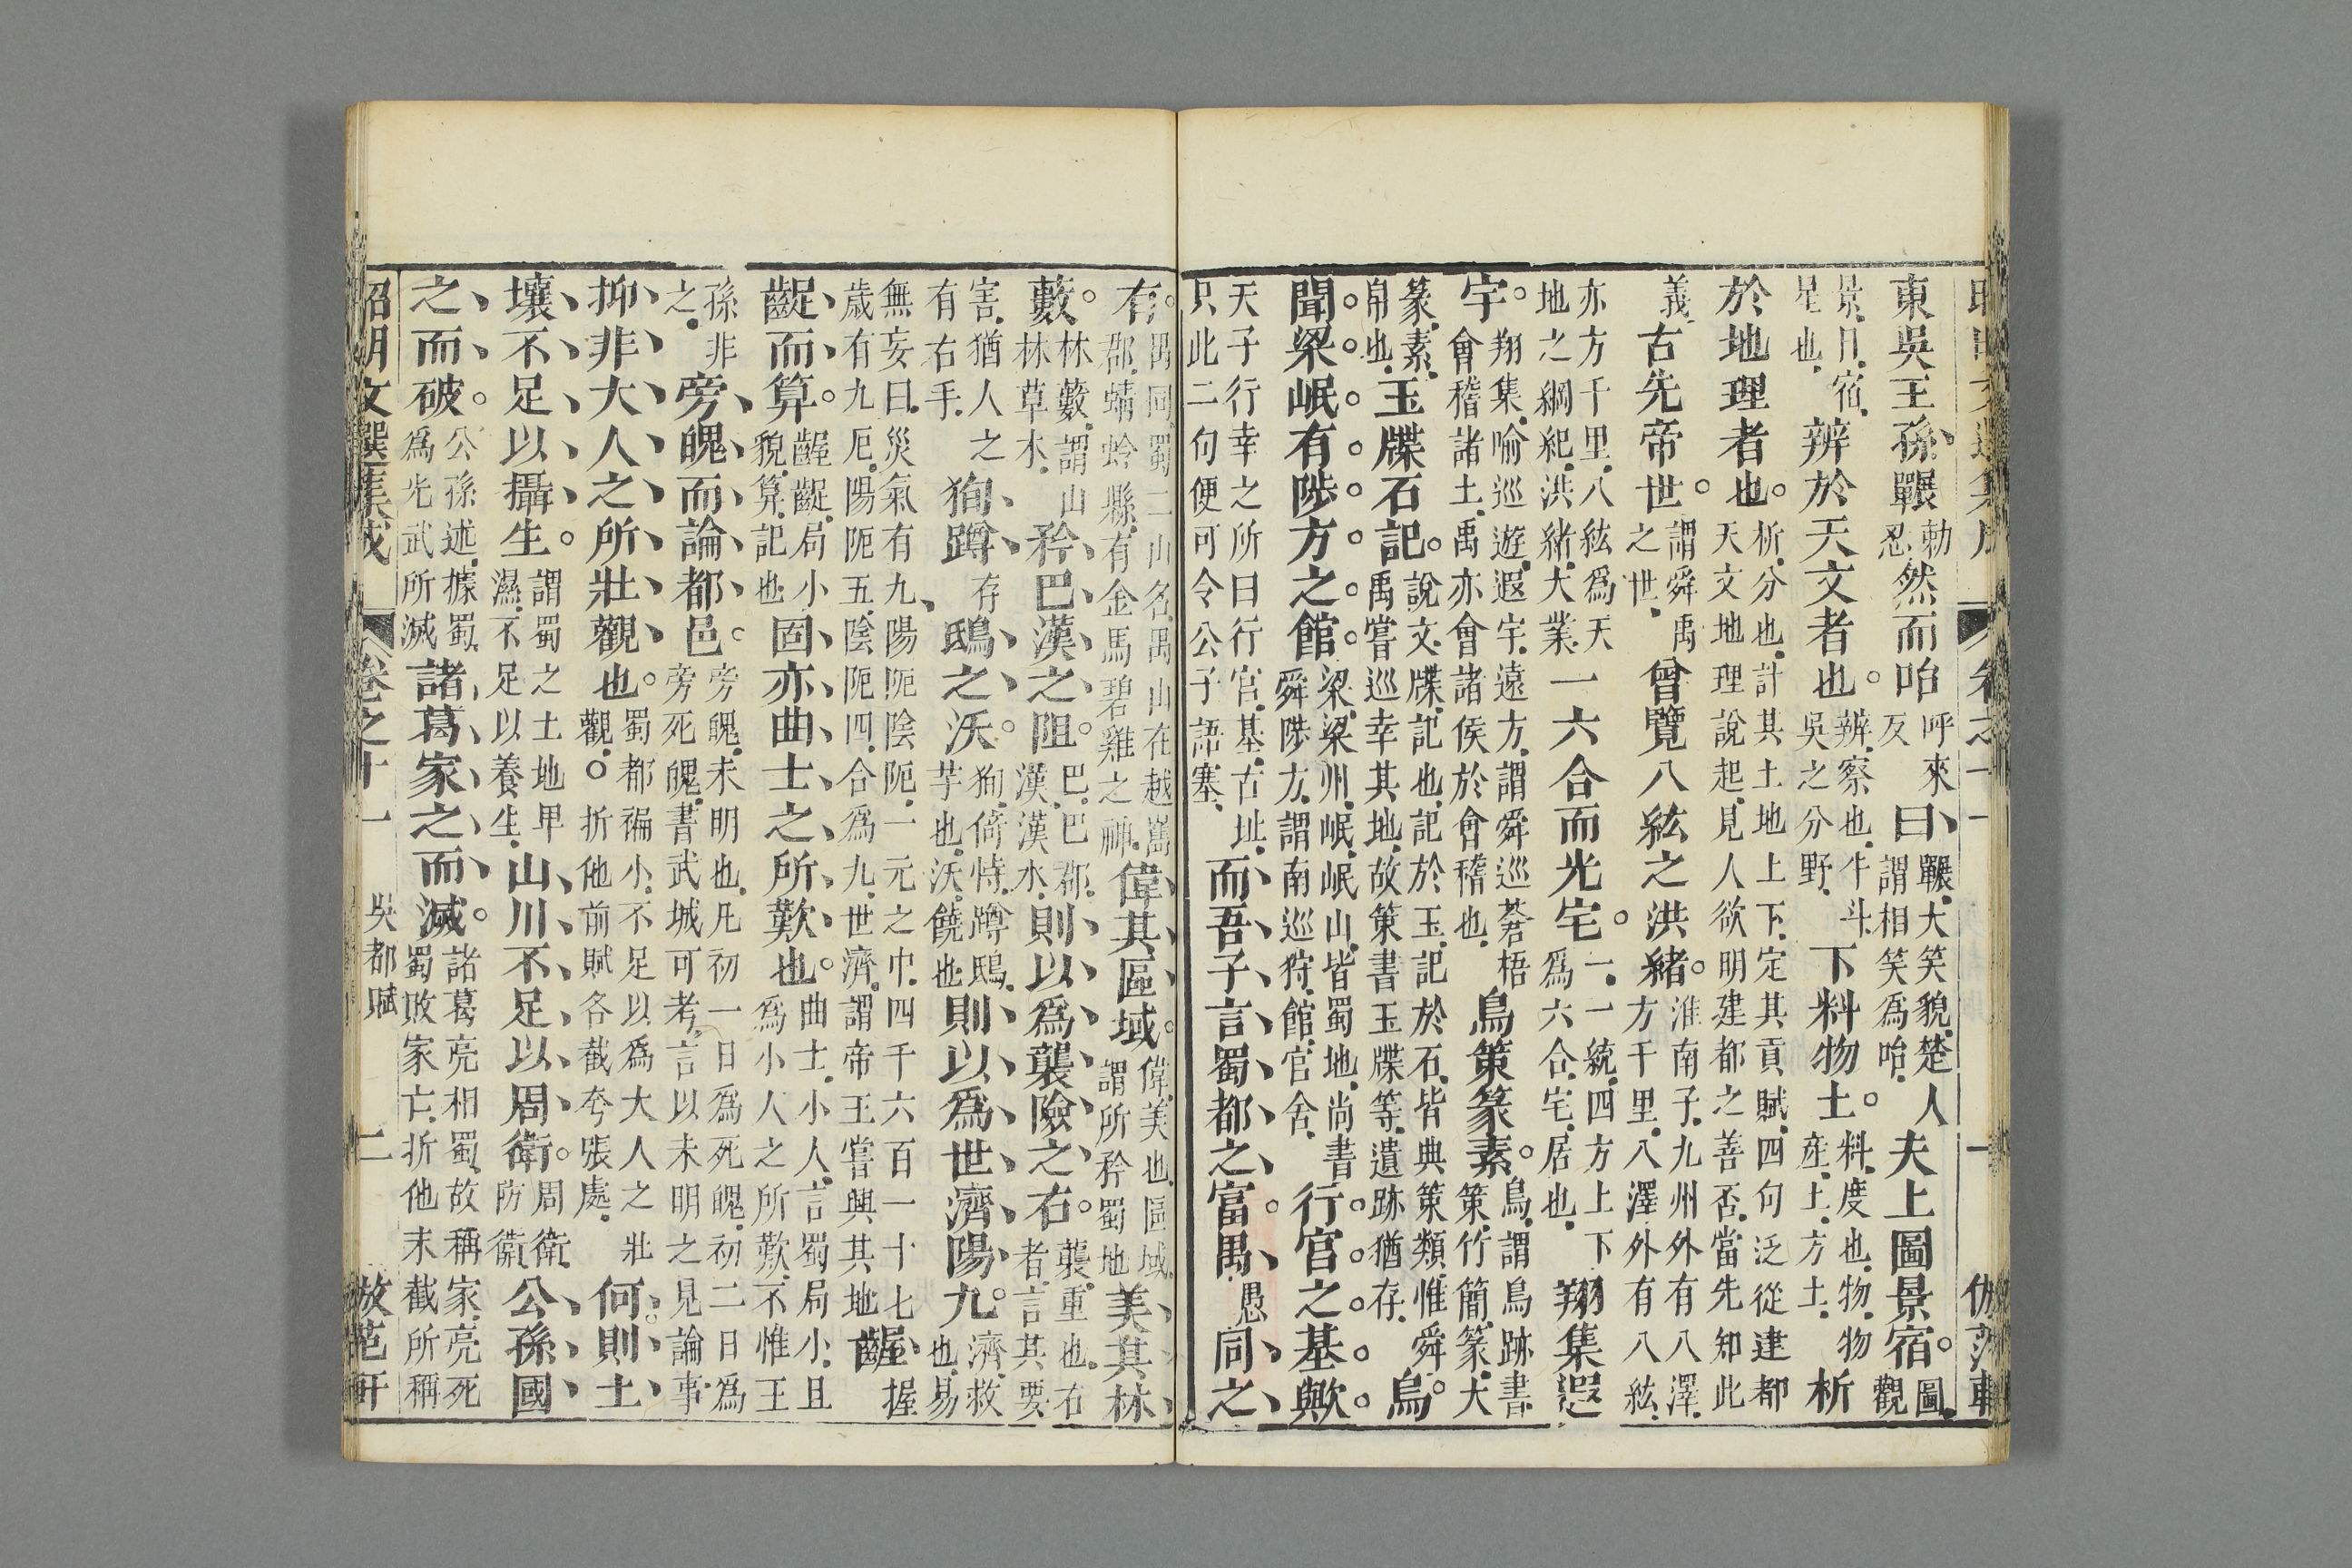 東吳王孫囅勅忍然而咍呼來反曰囅大笑貌楚人謂相笑爲咍夫上圖景宿圖觀
景日宿星也辨於天文者也辨察也牛斗吳之分野下料物土料度也物物産土方土析
於地理者也析分也計其土地上下定其貢賦四句泛從建都天文地理說起見人欲明建都之善否當先知此
義古先帝世謂舜禹之世曾覽八紘之洪緒淮南子九州外有八澤方千里八澤外有八紘
亦方千里八紘爲天地之綱紀洪緒大業一六合而光宅一一統四方上下爲六合宅居也翔集遐
宇翔集喻巡遊遐宇遠方謂舜巡蒼梧會稽諸土禹亦會諸侯於會稽也鳥策篆素鳥謂鳥跡書策竹簡篆大
篆素帛也玉牒石記說文牒記也記於玉記於石皆典策類惟舜禹嘗巡幸其地故策書玉牒等遺跡猶存烏
聞梁岷有陟方之館梁梁州岷岷山皆蜀地尚書舜陟方謂南巡狩館官舍行宮之基歟
天子行幸之所曰行宮基古址只此二句便可令公子語塞而吾子言蜀都之富禺愚同之
有禺同蜀二山名禺山在越嶲郡蜻蛉縣有金馬碧雞之神偉其區域偉美也區域謂所矜蜀地美其林
藪林藪謂山林草木矜巴漢之阻巴巴郡漢漢水則以爲襲險之右襲重也右者言其要
害猶人之有右手徇蹲存鴟之沃徇倚恃蹲鴟芋也沃饒也則以爲世濟陽九濟救也易
無妄曰災氣有九陽阨陰阨一元之中四千六百一十七歲有九厄陽阨五陰阨四合爲九世濟謂帝王嘗興其地齷握
齪而算齷齪局小貌算記也固亦曲士之所歎也曲士小人言蜀局小且爲小人之所歎不惟王
孫非之旁魄而論都邑旁魄未明也凡初一日爲死魄初二日爲旁死魄書武城可考言以未明之見論事
抑非大人之所壯觀也蜀都褊小不足以爲大人之壯觀○折他前賦各截夸張處何則土
壤不足以攝生謂蜀之土地卑濕不足以養生山川不足以周衛周衛防衛公孫國
之而破公孫述據蜀爲光武所滅諸葛家之而滅諸葛亮相蜀故稱家亮死蜀敗家亡折他末截所稱
昭明文選集成 卷之十一 吳都賦 二 倣范軒